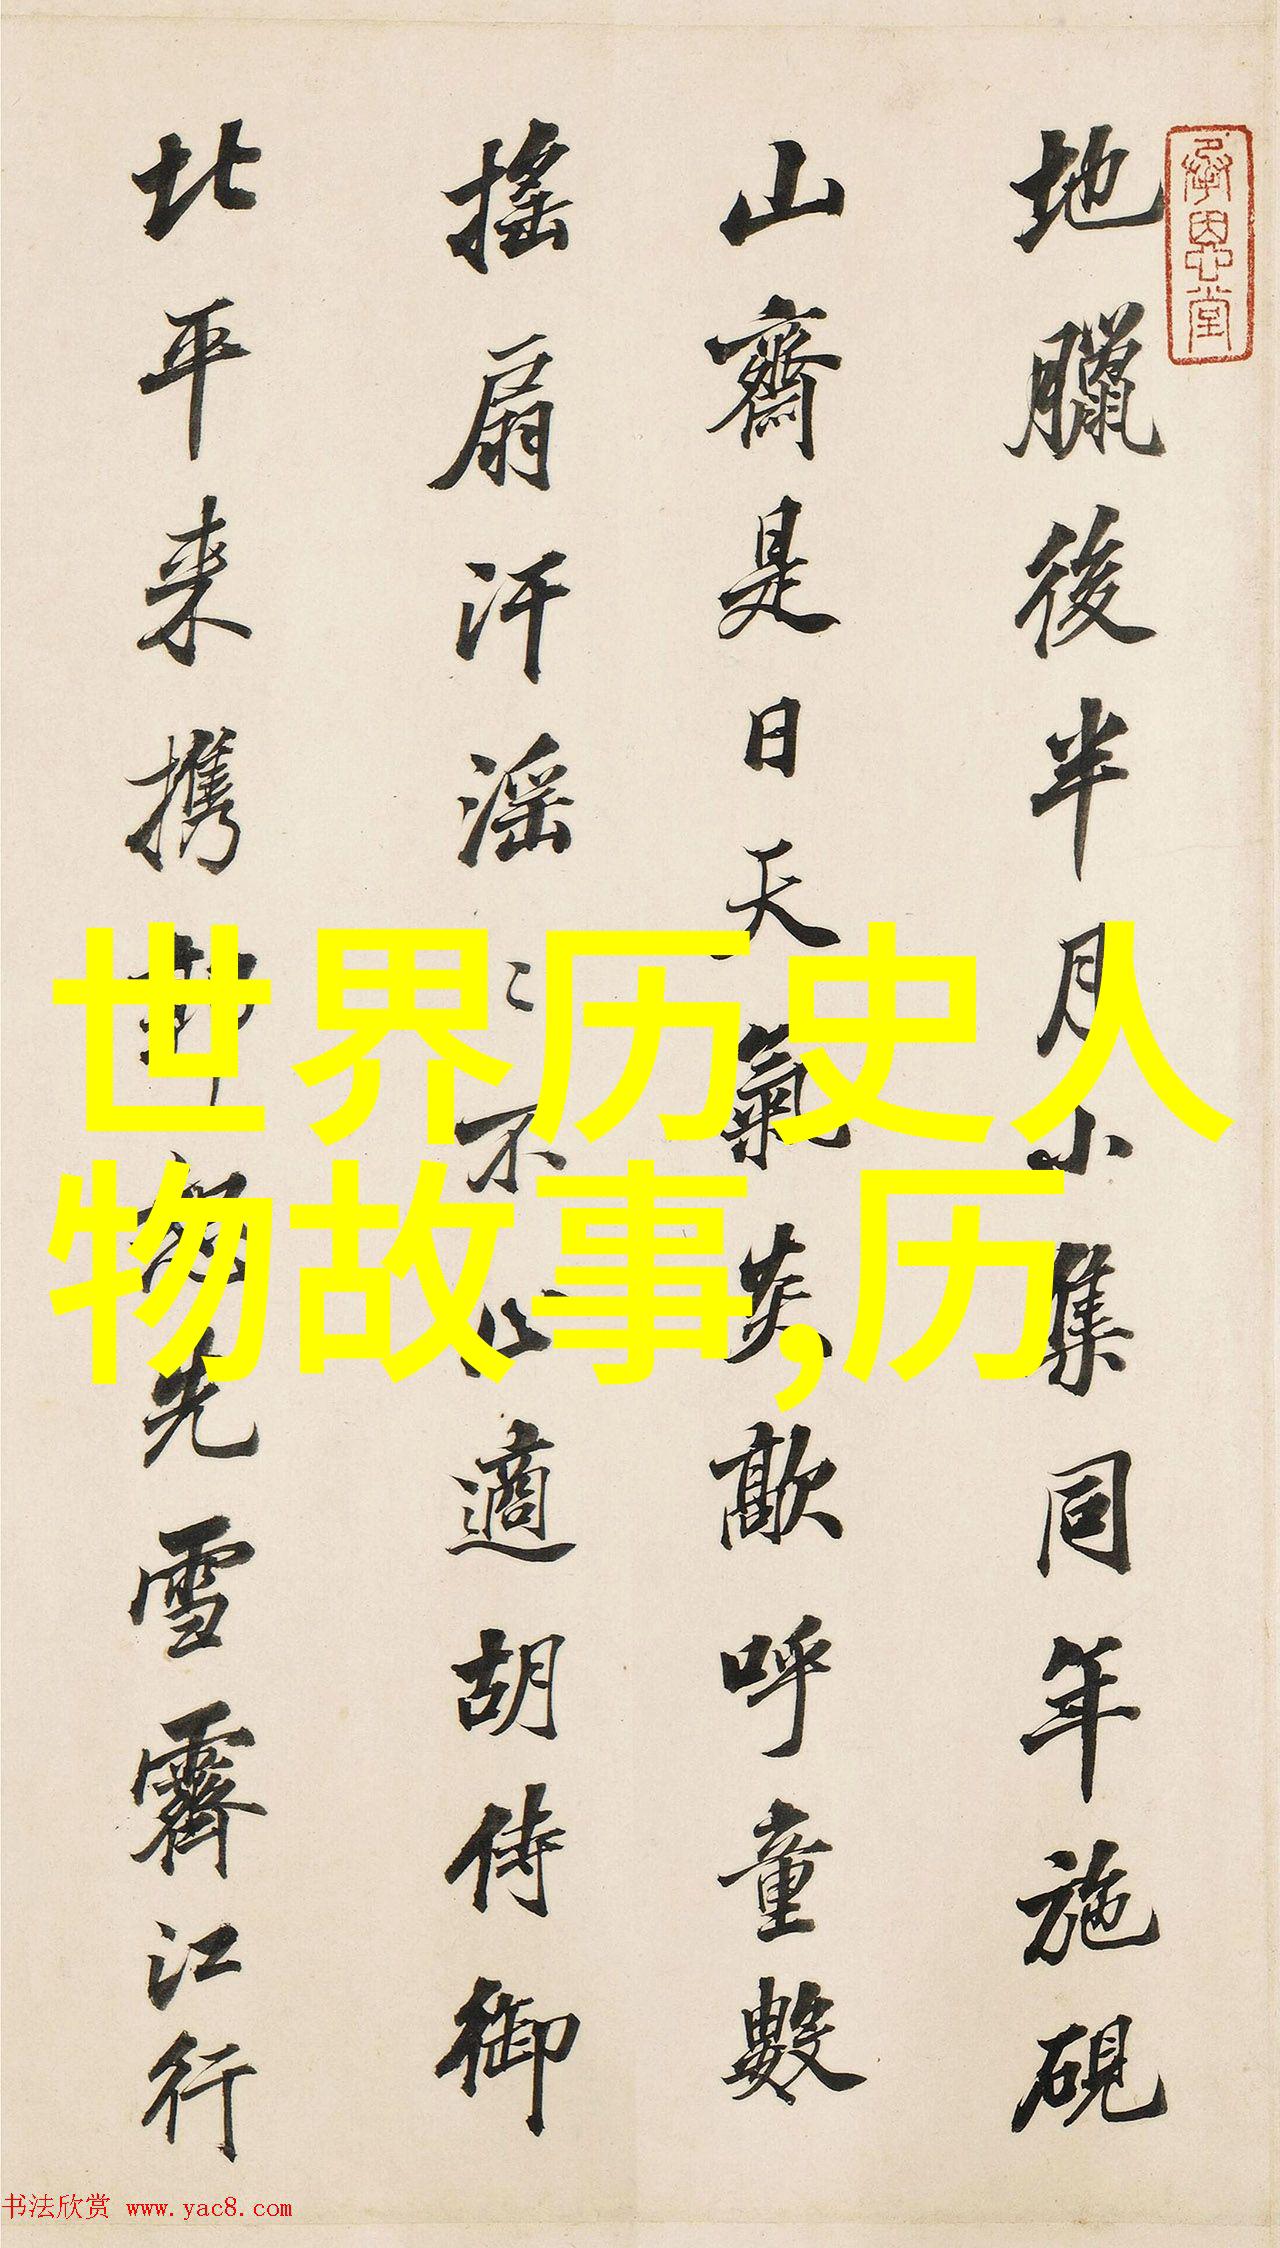 承恩堂
地臘後半月小集同年施硯
山齋是日天氣炎歊呼童數
搖扇汗滛〻不止適胡侍御
北平来携 先雪霽江行
世界历史人
物故事,历
书法欣赏 www.yac8.com